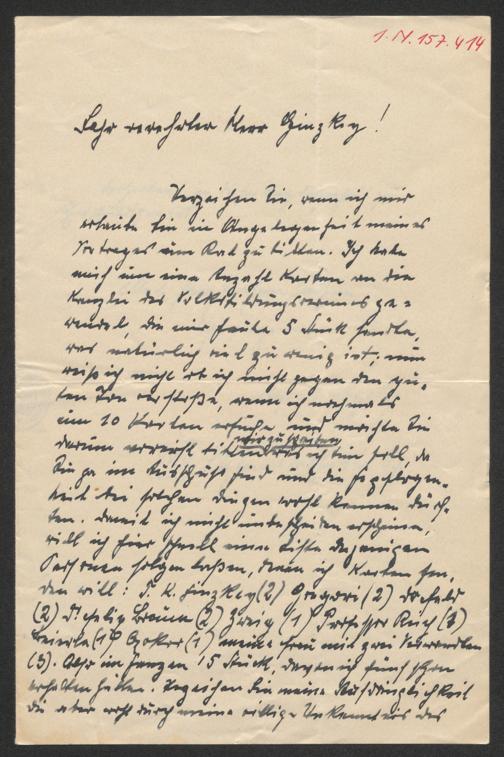 I.N. 157.414
Sehr verehrter Herr Ginzkey!
Verzeihen Sie, wenn ich mir
erlaube Sie in Angelegenheit meines
Vortrages um Rat zu bitten. Ich habe
mich um eine Anzahl Karten an die
Kanzlei des Volksbildungsvereines ge=
wendet, die mir heute 5 Stück sandte,
was natürlich viel zu wenig ist; nun
weiß ich nicht ob ich nicht gegen den gu=
ten Ton verstoße, wenn ich nochmals
um 10 Karten ersuche und möchte Sie
mir zu raten
darum vorerst bitten was ich tun soll, da
Sie ja im Ausschuß sind und die Gepflogen=
heit bei solchen Dingen wohl kennen dürf=
ten. Damit ich nicht unbescheiden erscheine,
will ich hier schnell eine Liste derjenigen
Personen folgen laßen, denen ich Karten sen=
den will: F. K. Ginzkey (2) Gregori (2)
(2) Braun (2) Zweig (1) Professor Reich (3)
(1) (1) meine Frau mir zwei Verwandten
(3). Also im Ganzen 15 Stück, wovon ich fünf schon
erhalten habe. Verzeihen Sie meine Aufdringlichkeit
die aber wohl durch meine völlige Unkenntnis des